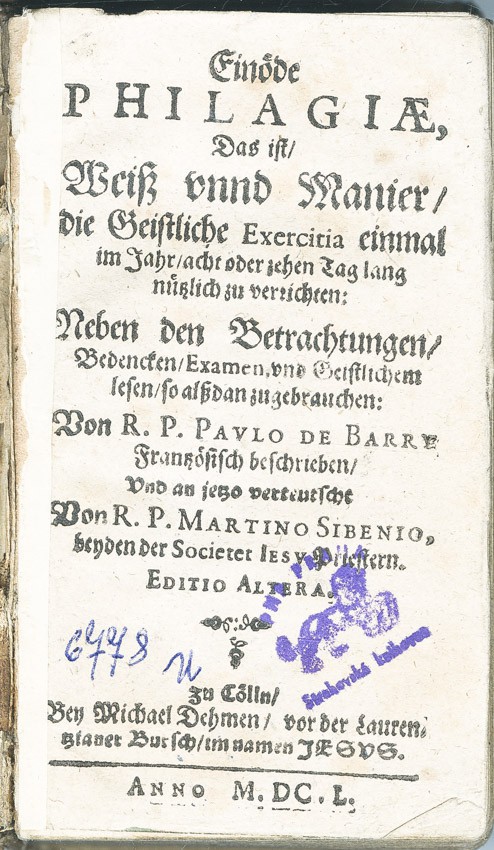 Einöde
PHILAGIÆ,
Das ist/
Weiß vnnd Manier/
die Geistliche Exercitia einmal
im Jahr/acht oder zehen Tag lang
nützlich zu verrichten:
Neben den Betrachtungen/
Bedencken/Examen,vnd Geistlichem
lesen/so alßdan zugebrauchen:
Von R. P. PAVLO DE BARRY
Frantzösisch beschrieben/
Vnd an jetzo verteutscht
Von R. P. MARTINO SIBENIO,
beyden der Societet IESV Priestern.
EDITIO ALTERA.
6778
Strahovská knihovna
Zu Cölln/
Bey Michael Dehmen/ vor der Lauren-
tzianer Bursch/im namen JÆSVS.
ANNO M.DC.L.